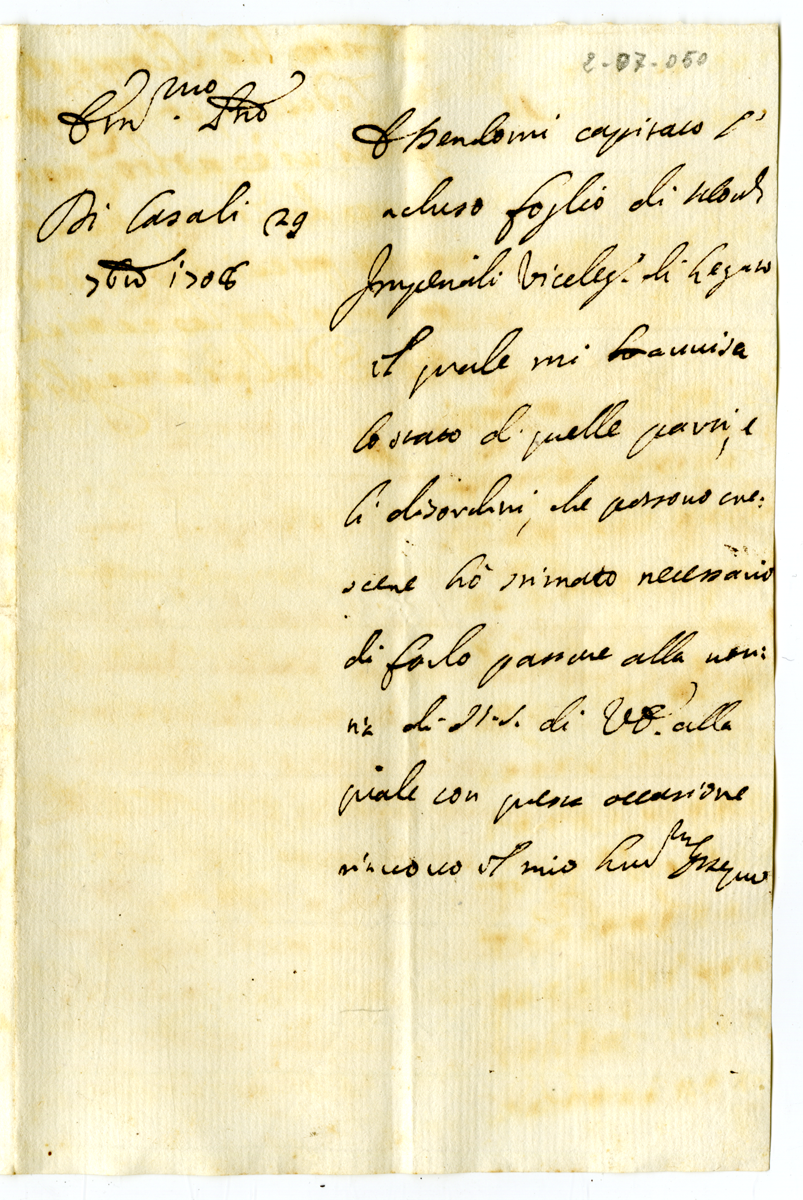 2-07-050
Em.mo Sig.re
Di Casali 29
7bre 1708
Essendomi capitato l'
acluso foglio di Mons.r
Imperiali Viceleg.o di
il quale mi ho avvisa
lo stato di quelle parti, e
li disordini, che possono cre:
scere hò stimato necessario
di farlo passare alla noti:
tia di N.S. di V.E. alla
quale con questa occasione
rinnovo il mio hum.m ossequio